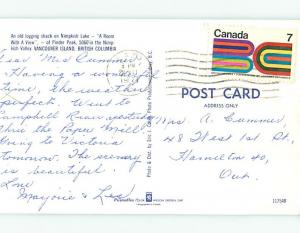 An old logging shack on Nimpkish Lake - "A Room
With A View" - of Pinder Peak, 5060' in the Nimp-
kish Valley VANCOUVER ISLAND, BRITISH COLUMBIA
Dear Mrs Cummer,
Having a wonderful
time, the weather
perfect. Went to
Campbell River yesterday
thru the Paper Mill
going to Victoria
tomorrow. The scenery
is beautiful.
Love
Marjorie & Les
Canada 7
POST CARD
ADDRESS ONLY
Mrs. A. Cummer,
48 West 1st St,
Hamilton 40,
Ont.
117548